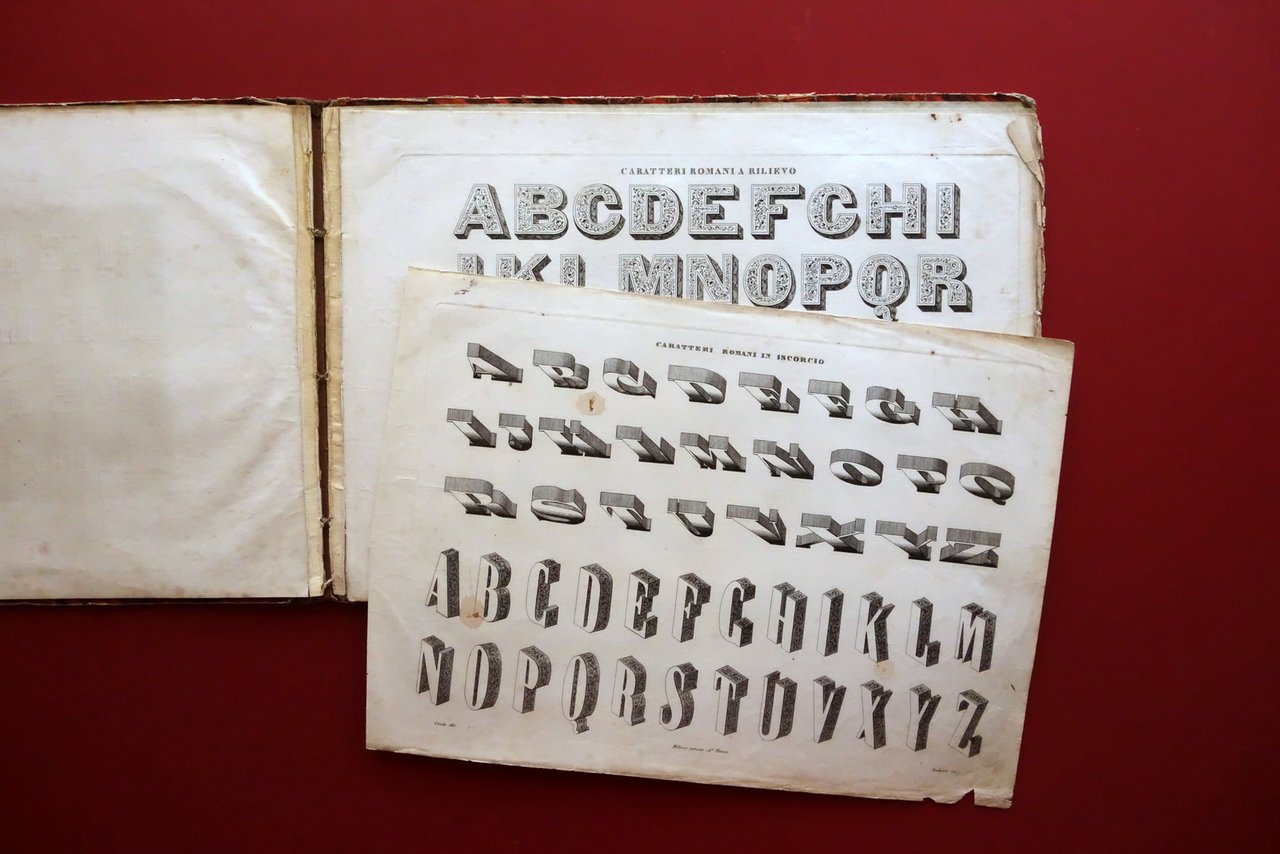 CARATTERI ROMANI A RILIEVO
ABCDEFGHI
KL MNOPQR
CARATTERI ROMANI IN ISCORCIO
ABCDEFGH
IJKLMNOPQ
RSTUVXYZ
ABCDEFGHIKLM
NOPQRSTUVXYZ
Milano presso